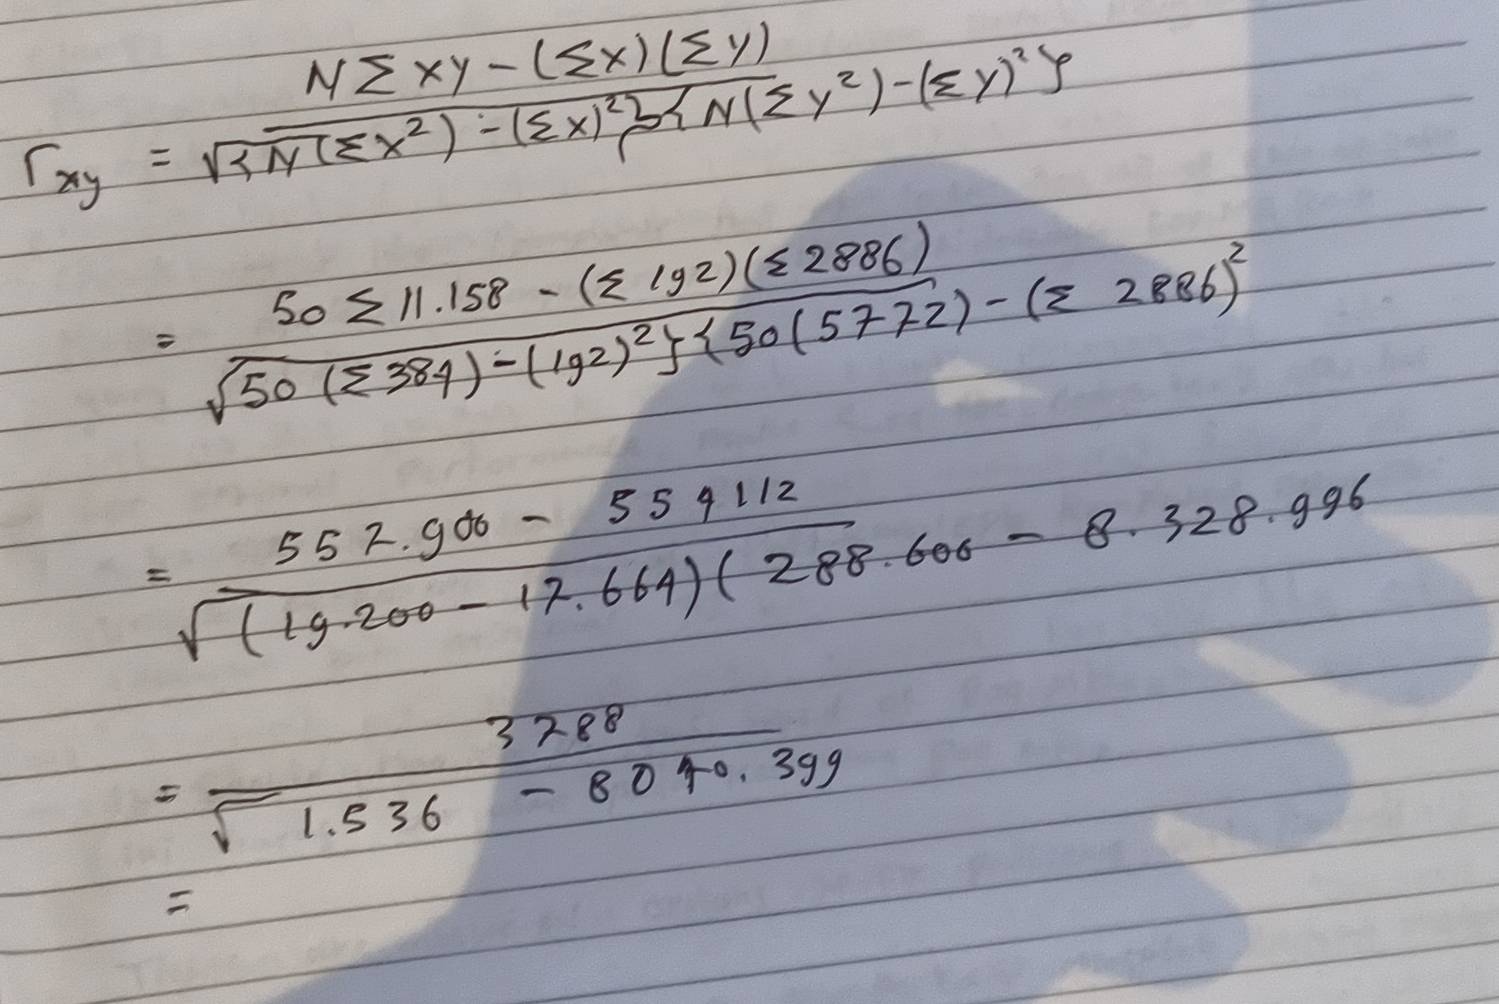 N Σ xy - (Σx) (Σy)
r xy = √{N (Σx²) - (Σx)²}{N (Σy²) - (Σy)²}
50 Σ 11.158 - (Σ 192) (Σ 2886)
= √50 (Σ 384) - (192)²}{50 (5772) - (Σ 2886)²
= 557.900 - 554112
√(19.200 - 17.664) (288.600 - 8.328.996
= 3788
√ 1.536 - 8040.399
=